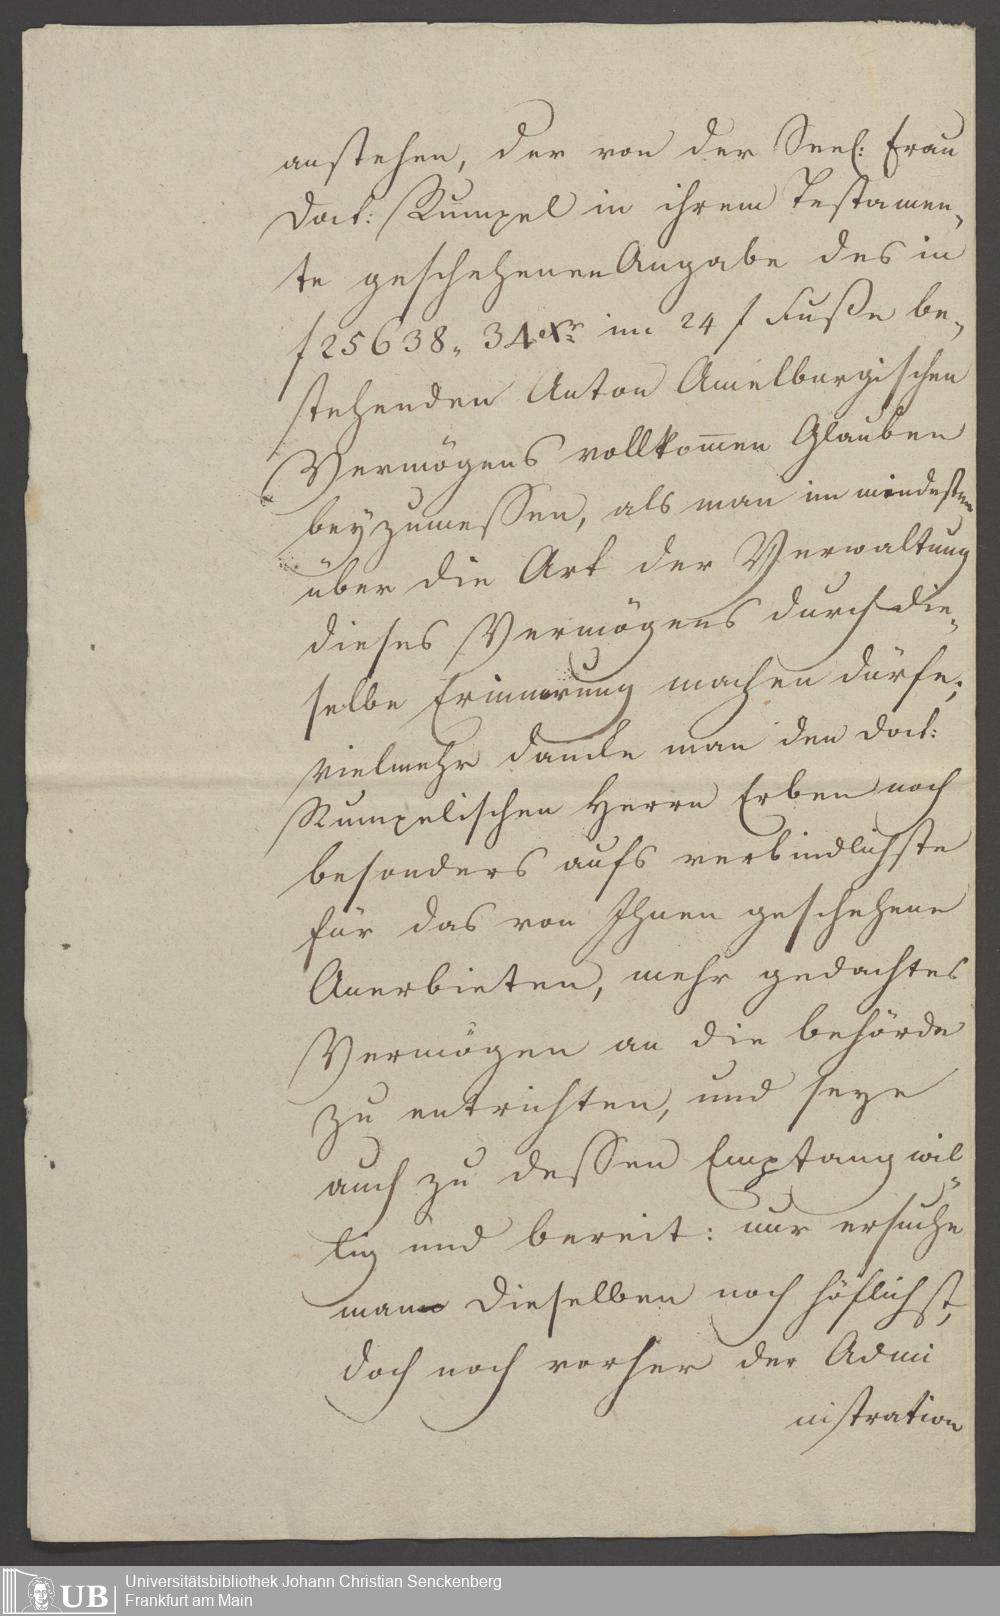 anstehen, der von der Seel: Frau
Doct: Rumpel in ihrem Testamen„
te geschehenen Angabe des in
f 25638„ 34 Xr im 24 f Fuße be„
stehenden Anton Amelburgischen
Vermögens vollkom̅en Glauben
beyzumessen, als man im mindesten
über die Art der Verwaltung
dieses Vermögens durch die„
selbe Erinnerung machen dürfe;
vielmehr dancke man den Doct:
Rumpelischen Herrn Erben noch
besonders aufs verbindlichste
für das von Ihnen geschehene
Anerbieten, mehr gedachtes
Vermögen an die behörde
zu entrichten, und seye
auch zu dessen Empfang wil„
lig und bereit: nur ersuche
man Dieselben noch höflichst,
doch noch vorher der Admi
nistration
UB Universitätsbibliothek Johann Christian Senckenberg
Frankfurt am Main